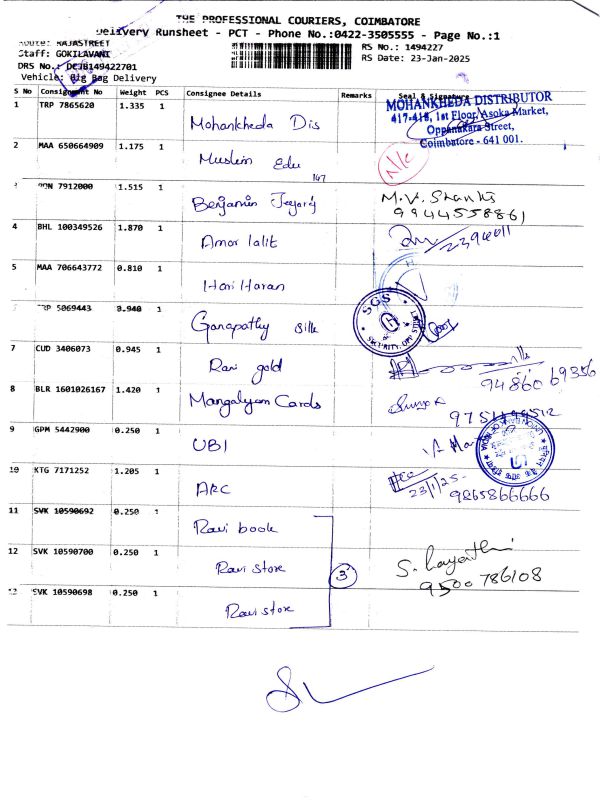 THE PROFESSIONAL COURIERS, COIMBATORE
Delivery Runsheet - PCT - Phone No.:0422-3505555 - Page No.:1
Route: RAJASTREET
RS No.: 1494227
Staff: GOKILAVANI
RS Date: 23-Jan-2025
DRS No.: DCJB149422701
Vehicle: Big Bag Delivery
S No Consignment No Weight PCS Consignee Details Remarks Seal & Signature
1 TRP 7865620 1.335 1 Mohankheda Dis
MOHANKHEDA DISTRIBUTOR
417-418, 1st Floor, Asoka Market,
Oppanakara Street,
Coimbatore - 641 001.
2 MAA 650664909 1.175 1 Muslein Edu N/c
147
7912000 1.515 1 Benjamin M.V.
9944558861
4 BHL 100349526 1.870 1 Amar lalit
5 MAA 706643772 0.810 1 Hari Haran
5069443 0.940 1 Ganapathy Silk
SGS
SECURITY
7 CUD 3406073 0.945 1 Ravi gold
94860 69356
8 BLR 1601026167 1.420 1 Mangalyam Cards
9 GPM 5442900 0.250 1 UBI
UNION BANK OF INDIA
10 KTG 7171252 1.205 1 ARC
23/1/25
9865866666
11 SVK 10590692 0.250 1 Ravi book
12 SVK 10590700 0.250 1 Ravi store
3
9500786108
SVK 10590698 0.250 1 Ravi store